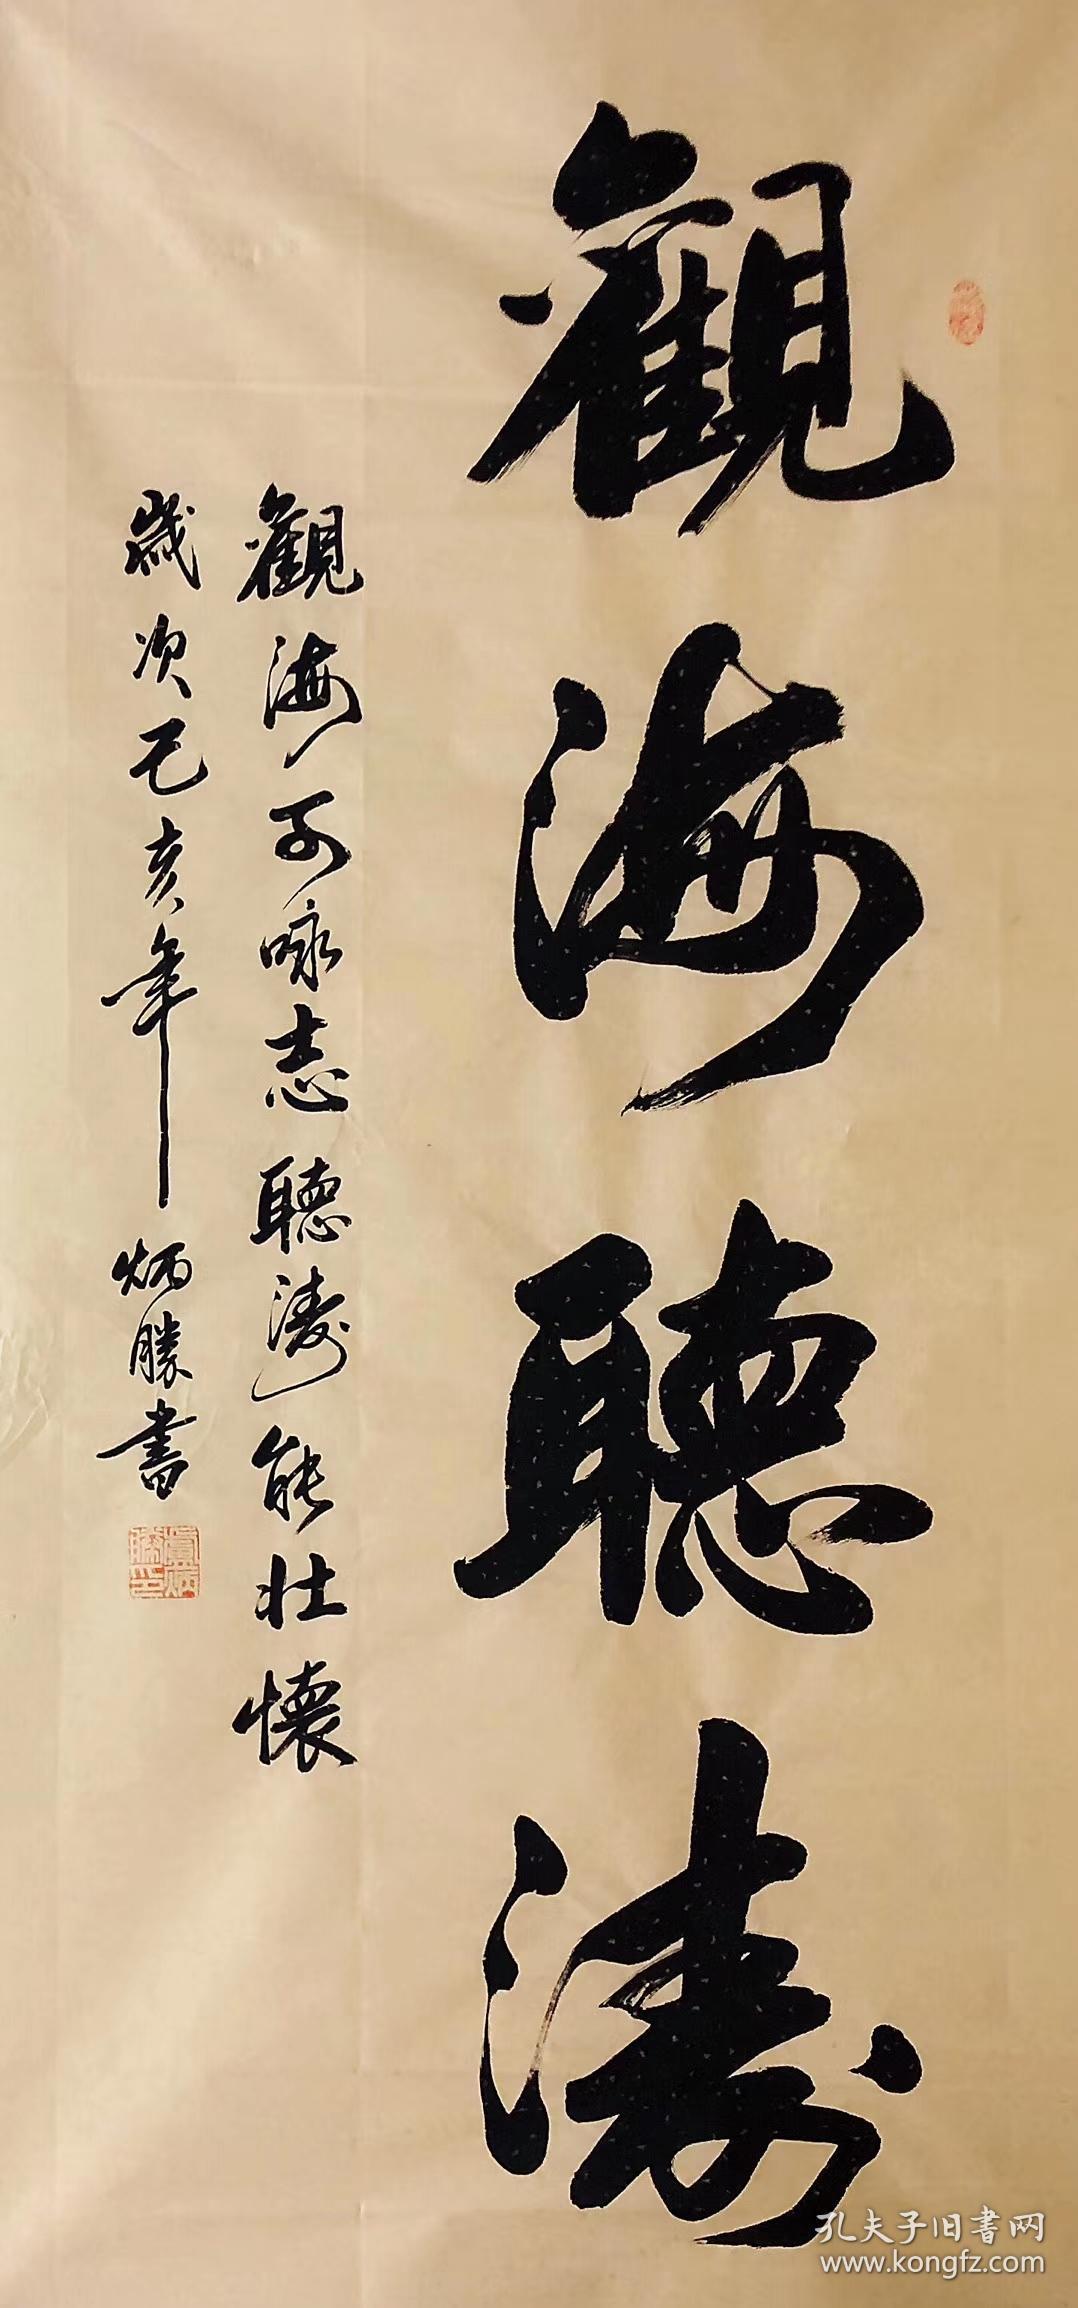 觀海聽濤
觀海可咏志聽濤能壯懷
歲次己亥年炳勝書
孔夫子旧書网
www.kongfz.com